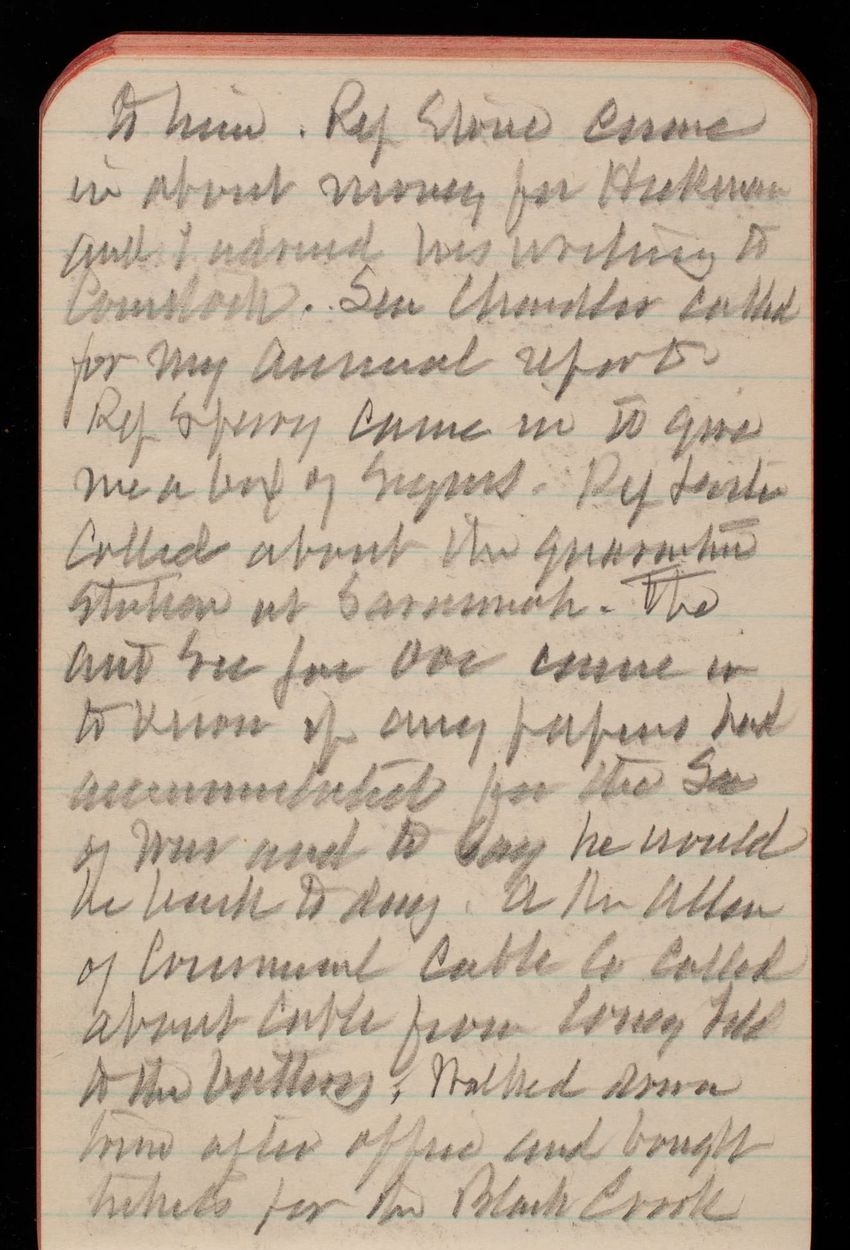 to him. Rep Stone came
in about money for Hickman
and I advised his writing to
Comstock. Sen Chandler called
for my annual reports
Rep Sperry came in to give
me a box of Segars. Rep Lester
called about the quarantine
Station at Savannah. The
ast Sec for Doe came in
to know if any papers had
accumulated for the Sec
of War and to say he would
be back to day. A Mr Allen
of Commercial Cable Co called
about cable from Coney Isld
to the battery. Walked down
town after office and bought
tickets for the Black Crook